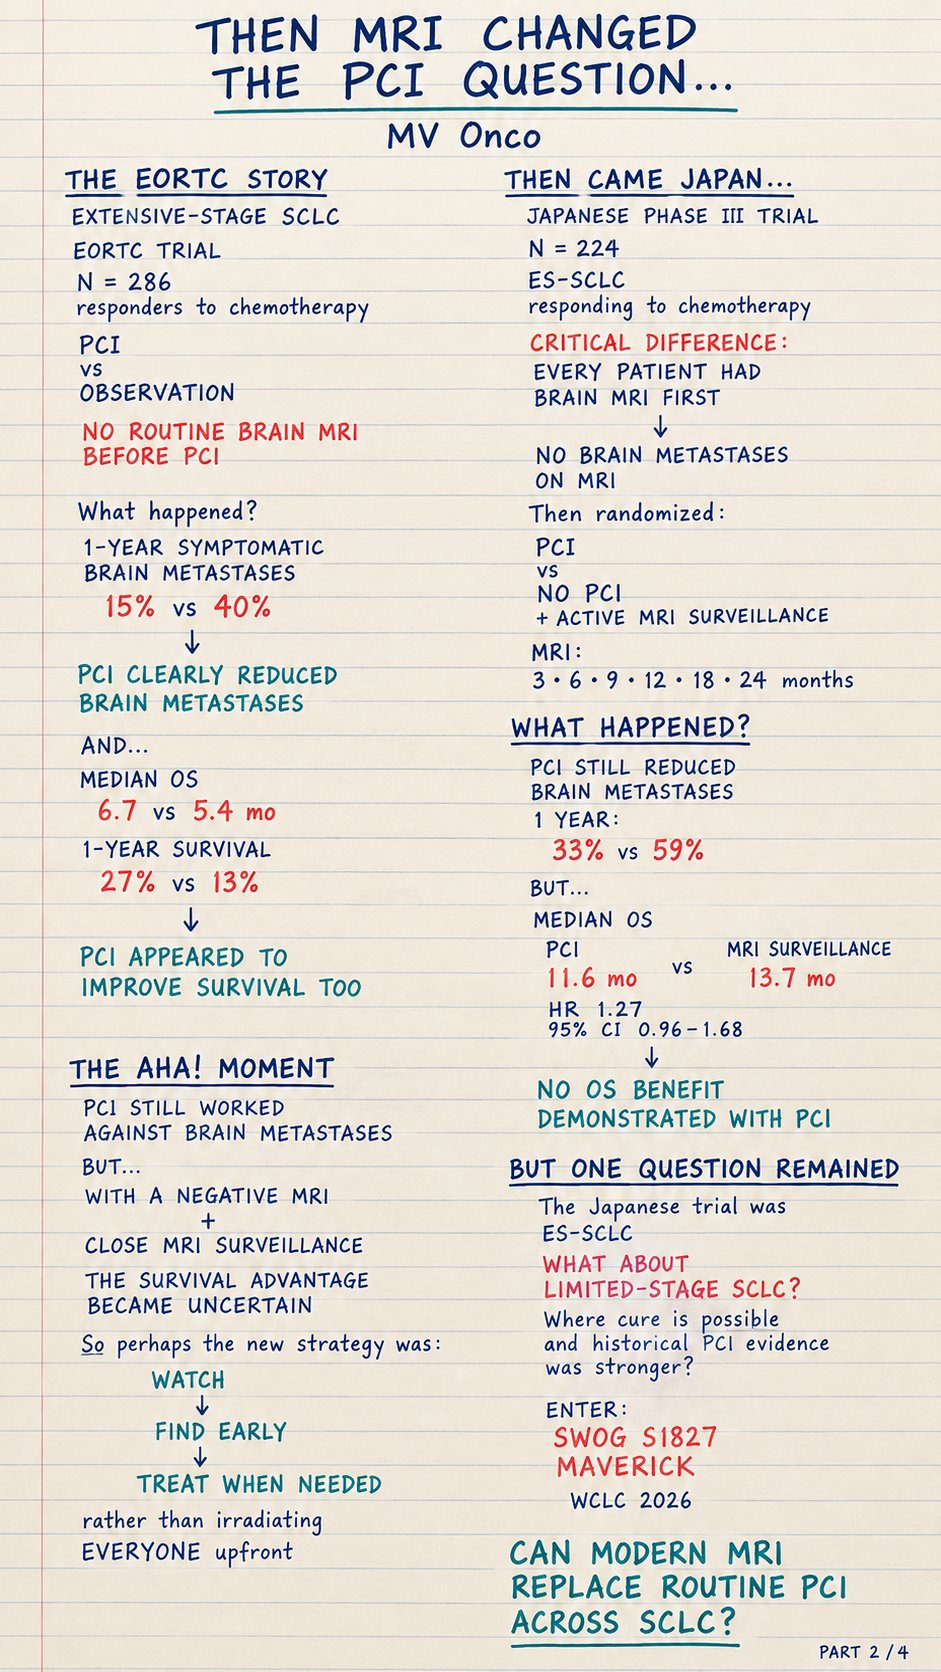 THEN MRI CHANGED
THE PCI QUESTION...
MV Onco
THE EORTC STORY
EXTENSIVE-STAGE SCLC
EORTC TRIAL
N = 286
responders to chemotherapy
PCI
vs
OBSERVATION
NO ROUTINE BRAIN MRI
BEFORE PCI
What happened?
1-YEAR SYMPTOMATIC
BRAIN METASTASES
15% vs 40%
↓
PCI CLEARLY REDUCED
BRAIN METASTASES
AND...
MEDIAN OS
6.7 vs 5.4 mo
1-YEAR SURVIVAL
27% vs 13%
↓
PCI APPEARED TO
IMPROVE SURVIVAL TOO
THE AHA! MOMENT
PCI STILL WORKED
AGAINST BRAIN METASTASES
BUT...
WITH A NEGATIVE MRI
+
CLOSE MRI SURVEILLANCE
THE SURVIVAL ADVANTAGE
BECAME UNCERTAIN
So perhaps the new strategy was:
WATCH
↓
FIND EARLY
↓
TREAT WHEN NEEDED
rather than irradiating
EVERYONE upfront
THEN CAME JAPAN...
JAPANESE PHASE III TRIAL
N = 224
ES-SCLC
responding to chemotherapy
CRITICAL DIFFERENCE:
EVERY PATIENT HAD
BRAIN MRI FIRST
↓
NO BRAIN METASTASES
ON MRI
Then randomized:
PCI
vs
NO PCI
+ ACTIVE MRI SURVEILLANCE
MRI:
3 • 6 • 9 • 12 • 18 • 24 months
WHAT HAPPENED?
PCI STILL REDUCED
BRAIN METASTASES
1 YEAR:
33% vs 59%
BUT...
MEDIAN OS
PCI vs MRI SURVEILLANCE
11.6 mo 13.7 mo
HR 1.27
95% CI 0.96-1.68
↓
NO OS BENEFIT
DEMONSTRATED WITH PCI
BUT ONE QUESTION REMAINED
The Japanese trial was
ES-SCLC
WHAT ABOUT
LIMITED-STAGE SCLC?
Where cure is possible
and historical PCI evidence
was stronger?
ENTER:
SWOG S1827
MAVERICK
WCLC 2026
CAN MODERN MRI
REPLACE ROUTINE PCI
ACROSS SCLC?
PART 2 / 4